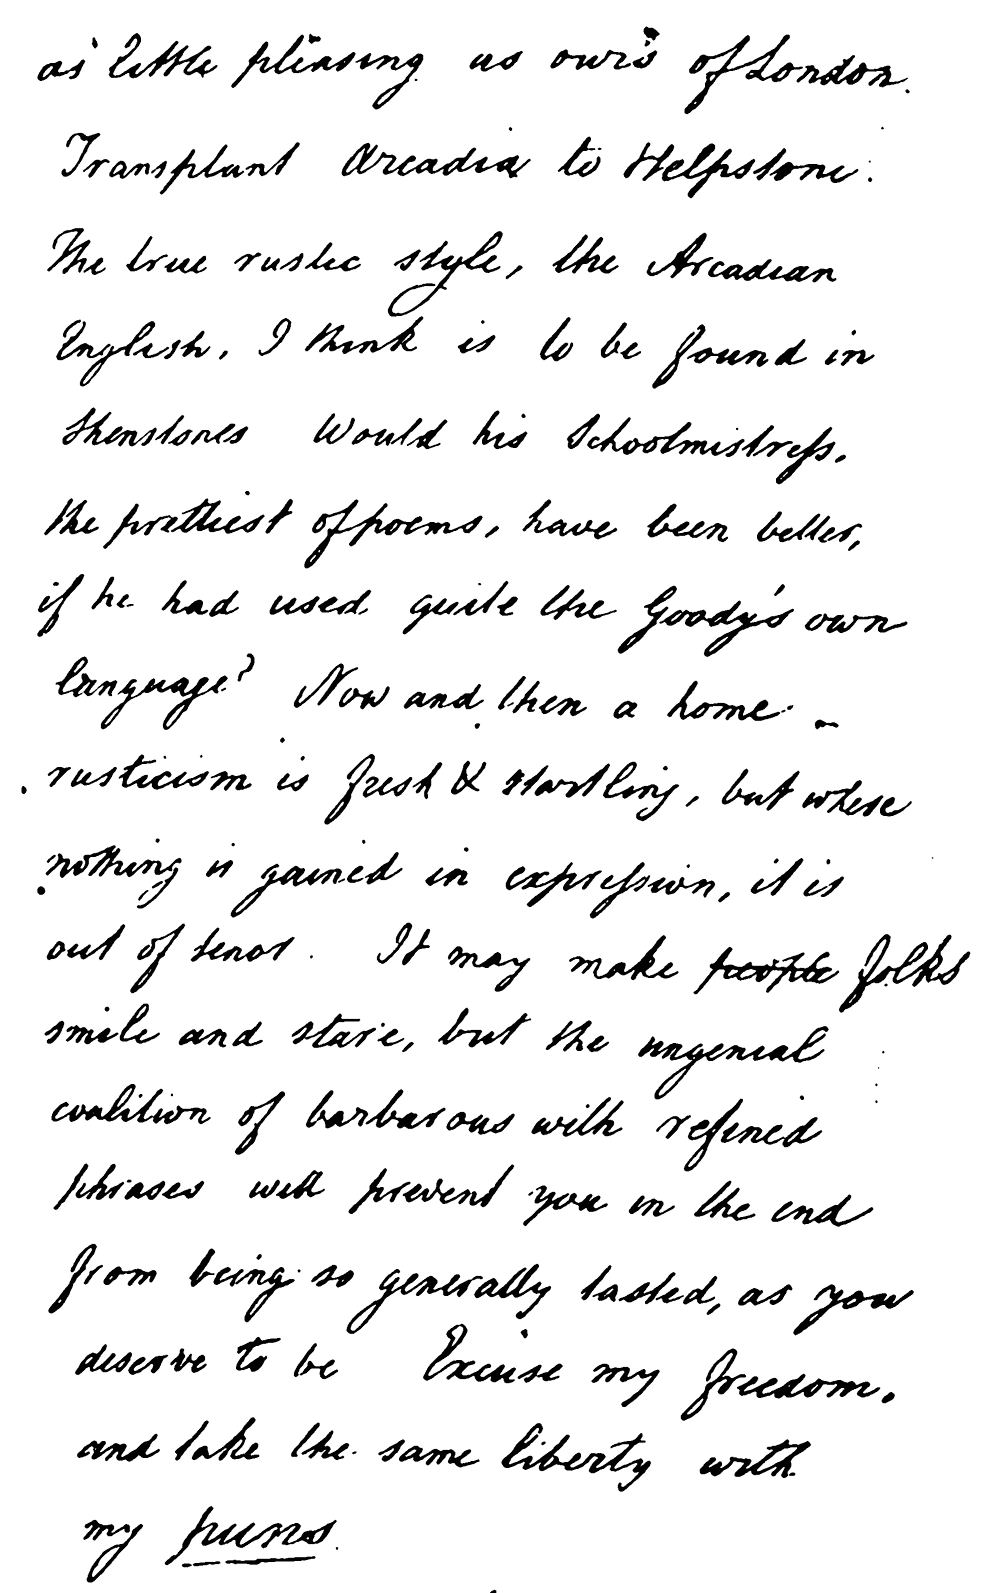 as little pleasing as our's of London.
Transplant Arcadia to Helpstone.
The true rustic style, the Arcadian
English, I think is to be found in
Shenstones Would his Schoolmistress,
the prettiest of poems, have been better,
if he had used quite the Goody's own
language? Now and then a home
rusticism is fresh & startling, but where
nothing is gained in expression, it is
out of tenor. It may make people folks
smile and stare, but the ungenial
coalition of barbarous with refined
phrases will prevent you in the end
from being so generally tasted, as you
deserve to be Excuse my freedom,
and take the same liberty with
my puns.